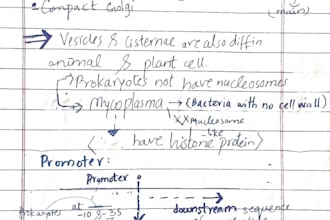 • Compact Golgi
(main)
⇒ Vesicles & Cisternae are also diffin
animal & plant cell.
→ Prokaryotes not have nucleosomes
→ Mycoplasma → (Bacteria with no cell wall)
have histone-like protein
Promoter:
Promoter
→ downstream sequence
Prokaryotes at -10 & -35